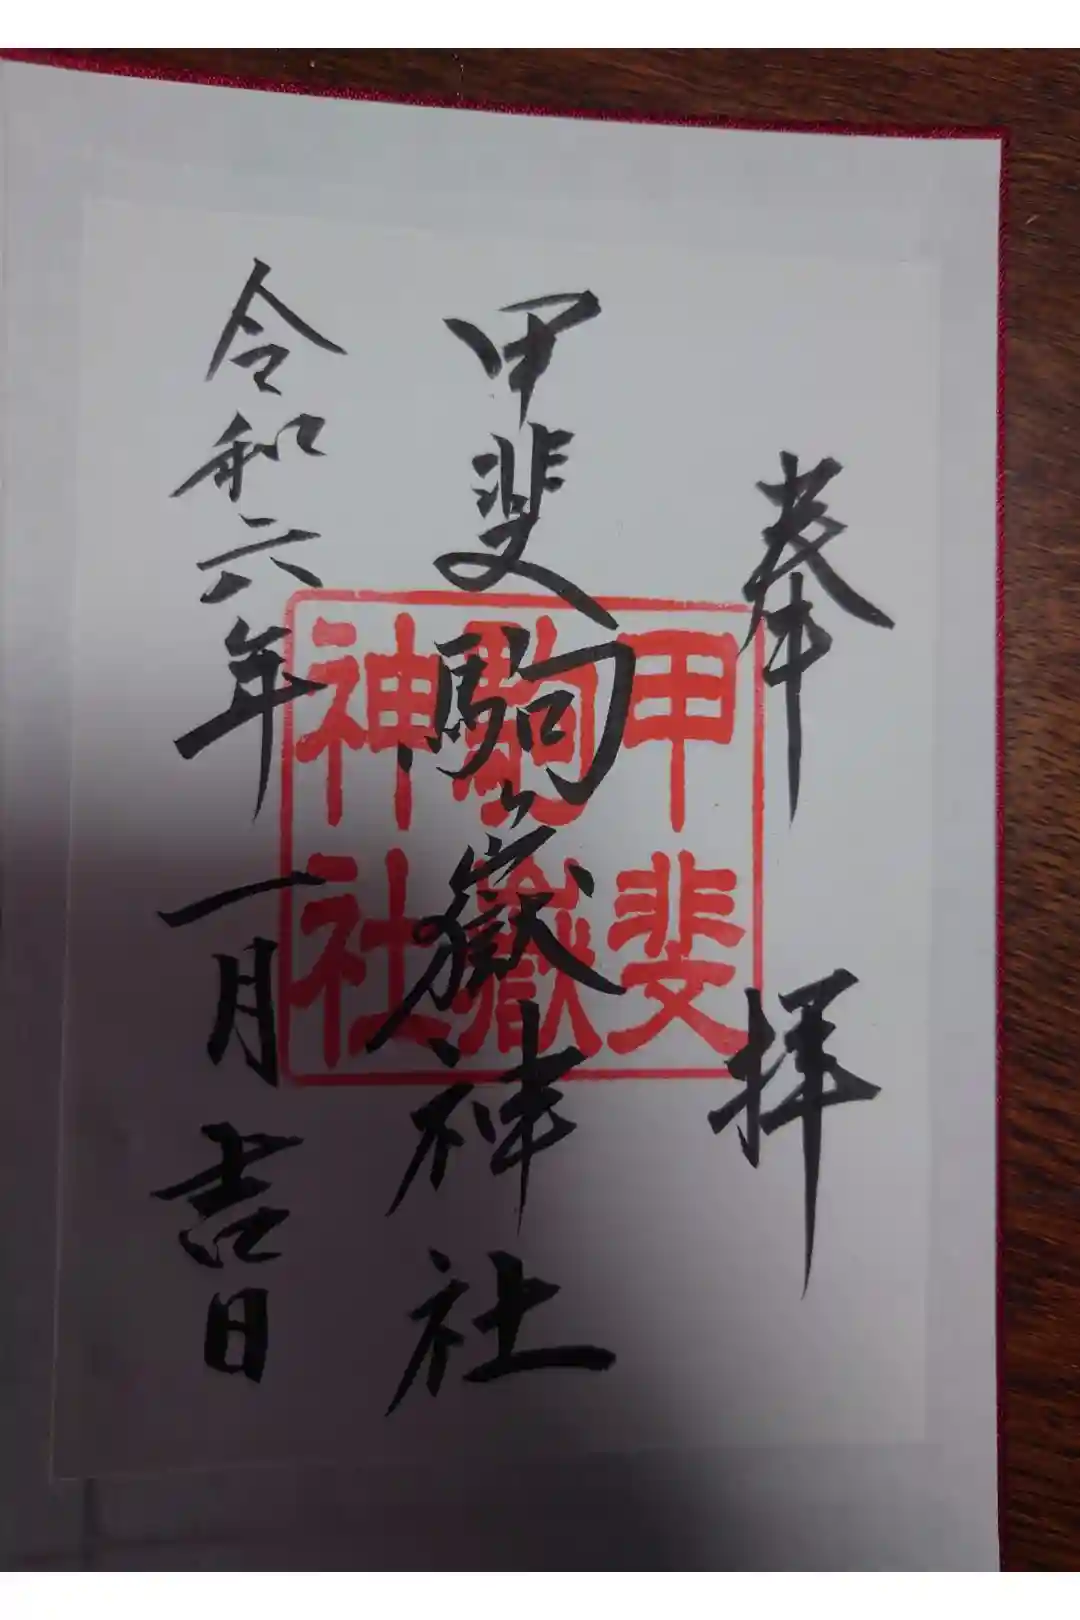 奉拝
甲斐駒嶽神社
令和六年一月吉日
甲斐
駒嶽
神社